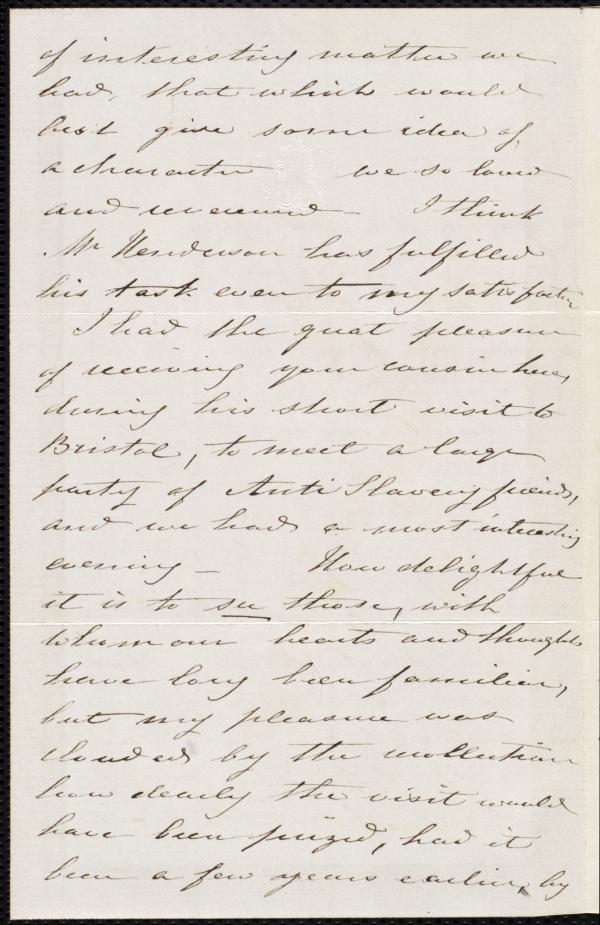 of interesting matter we
had, that which would
best give some idea of
a character we so loved
and revered - I think
Mr Henderson has fulfilled
his task even to my satisfaction
I had the great pleasure
of receiving your cousin here,
during his short visit to
Bristol, to meet a large
party of Anti Slavery friends,
and we had a most interesting
evening - How delightful
it is to see those, with
whom our hearts and thoughts
have long been familiar,
but my pleasure was
clouded by the recollection
how dearly the visit would
have been prized, had it
been a few years earlier, by